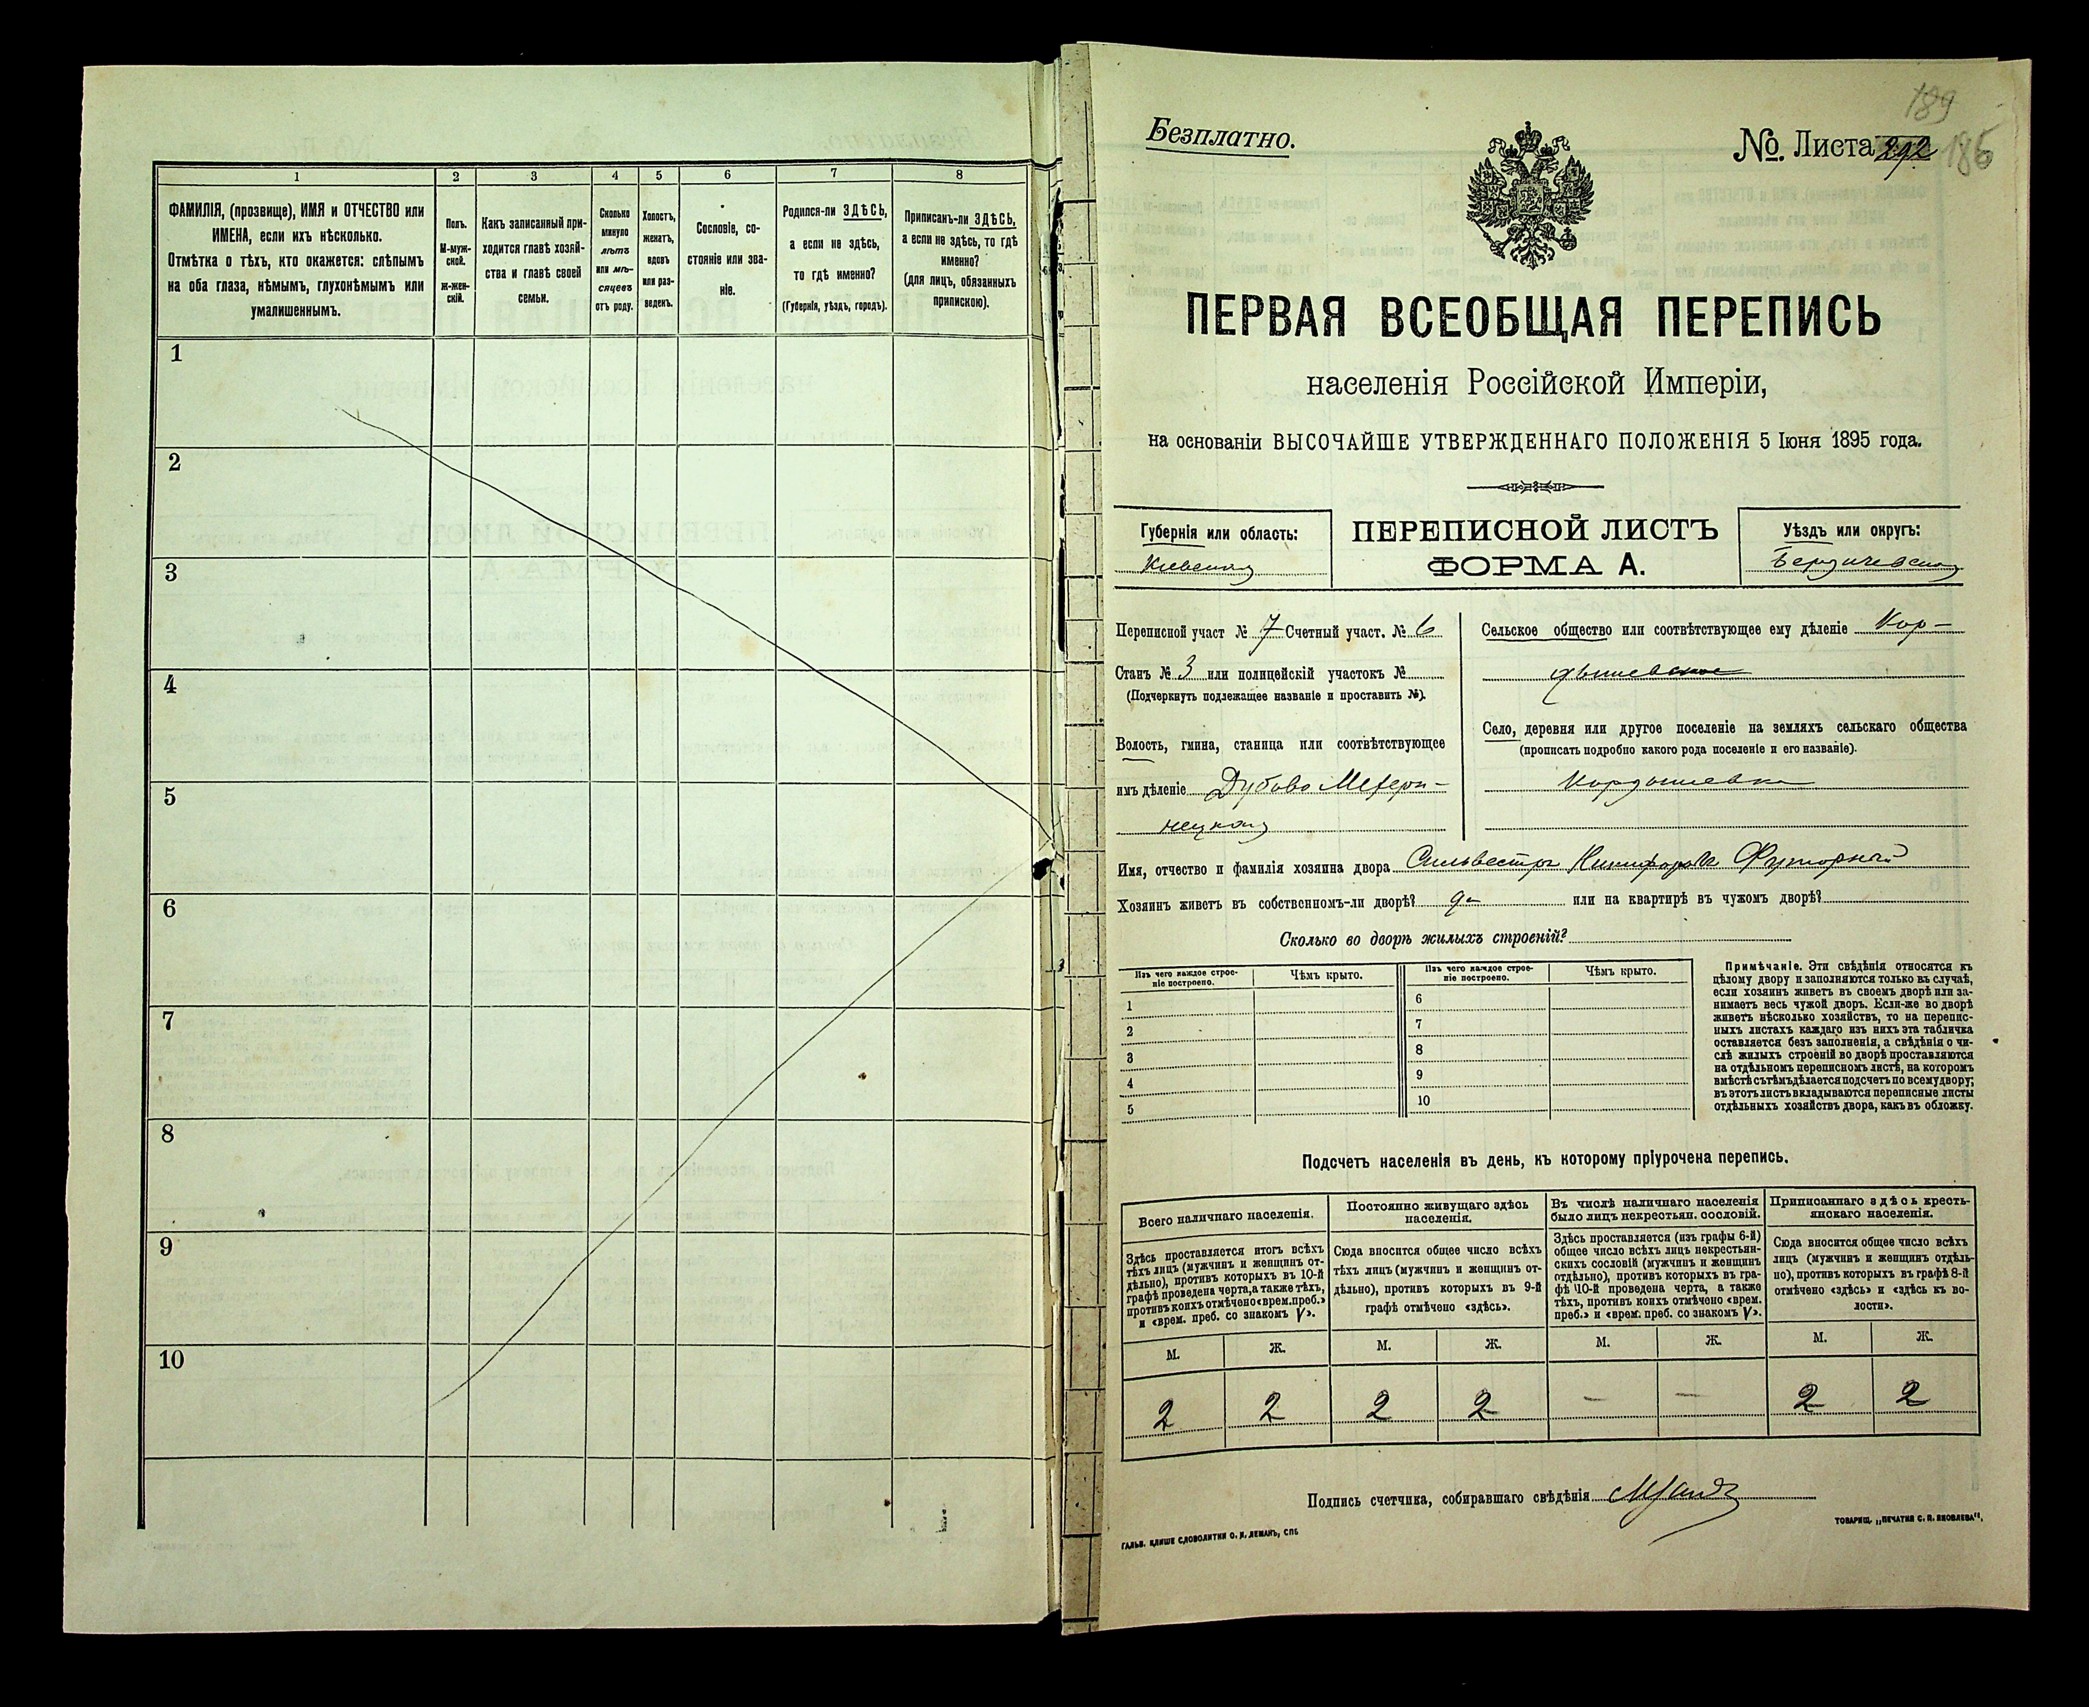 1 2 3 4 5 6 7 8
ФАМИЛІЯ, (прозвище), ИМЯ и ОТЧЕСТВО или
ИМЕНА, если ихъ нѣсколько.
Отмѣтка о тѣхъ, кто окажется: слѣпымъ
на оба глаза, нѣмымъ, глухонѣмымъ или
умалишеннымъ.
Полъ.
М-муж-
ской.
Ж-жен-
скій.
Какъ записанный при-
ходится главѣ хозяй-
ства и главѣ своей
семьи.
Сколько
минуло
лѣтъ
или мѣ-
сяцевъ
отъ роду.
Холостъ,
женатъ,
вдовъ
или раз-
веденъ.
Сословіе, со-
стояніе или зва-
ніе.
Родился-ли ЗДѢСЬ,
а если не здѣсь,
то гдѣ именно?
(Губернія, уѣздъ, городъ).
Приписанъ-ли ЗДѢСЬ,
а если не здѣсь, то гдѣ
именно?
(для лицъ, обязанныхъ
припискою).
1
2
3
4
5
6
7
8
9
10
189
Безплатно.
№ Листа 292 186
ПЕРВАЯ ВСЕОБЩАЯ ПЕРЕПИСЬ
населенія Россійской Имперіи,
на основаніи ВЫСОЧАЙШЕ УТВЕРЖДЕННАГО ПОЛОЖЕНІЯ 5 Іюня 1895 года.
Губернія или область:
Кіевская
ПЕРЕПИСНОЙ ЛИСТЪ
ФОРМА А.
Уѣздъ или округъ:
Бердичевскій
Переписной участ № 7 Счетный участ. № 6
Станъ № 3 или полицейскій участокъ №
(Подчеркнуть подлежащее названіе и проставить №).
Волость, гмина, станица или соотвѣтствующее
имъ дѣленіе Дубово Мехери-
нецкая
Сельское общество или соотвѣтствующее ему дѣленіе Кор-
дышевское
Село, деревня или другое поселеніе на земляхъ сельскаго общества
(прописать подробно какого рода поселеніе и его названіе).
Кордышевка
Имя, отчество и фамилія хозяина двора Сильвестръ Никифоровъ Футорный
Хозяинъ живетъ въ собственномъ-ли дворѣ? да или на квартирѣ въ чужомъ дворѣ?
Сколько во дворѣ жилыхъ строеній?
Изъ чего каждое строе-
ніе построено.
Чѣмъ крыто.
Изъ чего каждое строе-
ніе построено.
Чѣмъ крыто.
1 6
2 7
3 8
4 9
5 10
Примѣчаніе. Эти свѣдѣнія относятся къ
цѣлому двору и заполняются только въ случаѣ,
если хозяинъ живетъ въ своемъ дворѣ или за-
нимаетъ весь чужой дворъ. Если-же во дворѣ
живетъ нѣсколько хозяйствъ, то на перепис-
ныхъ листахъ каждаго изъ нихъ эта табличка
оставляется безъ заполненія, а свѣдѣнія о чи-
слѣ жилыхъ строеній во дворѣ проставляются
на отдѣльномъ переписномъ листѣ, на которомъ
вмѣстѣ съ тѣмъ дѣлается подсчетъ по всему двору;
въ этотъ листъ вкладываются переписные листы
отдѣльныхъ хозяйствъ двора, какъ въ обложку.
Подсчетъ населенія въ день, къ которому пріурочена перепись.
Всего наличнаго населенія.
Здѣсь проставляется итогъ всѣхъ
тѣхъ лицъ (мужчинъ и женщинъ от-
дѣльно), противъ которыхъ въ 10-й
графѣ проведена черта, а также тѣхъ,
противъ коихъ отмѣчено «врем. преб.»
и «врем. преб. со знакомъ V».
Постоянно живущаго здѣсь
населенія.
Сюда вносится общее число всѣхъ
тѣхъ лицъ (мужчинъ и женщинъ от-
дѣльно), противъ которыхъ въ 9-й
графѣ отмѣчено «здѣсь».
Въ числѣ наличнаго населенія
было лицъ некрестьян. сословій.
Здѣсь проставляется (изъ графы 6-й)
общее число всѣхъ лицъ некрестьян-
скихъ сословій (мужчинъ и женщинъ
отдѣльно), противъ которыхъ въ гра-
фѣ 10-й проведена черта, а также
тѣхъ, противъ коихъ отмѣчено «врем.
преб.» и «врем. преб. со знакомъ V».
Приписаннаго здѣсь кресть-
янскаго населенія.
Сюда вносится общее число всѣхъ
лицъ (мужчинъ и женщинъ отдѣль-
но), противъ которыхъ въ графѣ 8-й
отмѣчено «здѣсь» и «здѣсь къ во-
лости».
М. Ж. М. Ж. М. Ж. М. Ж.
2 2 2 2 — — 2 2
Подпись счетчика, собиравшаго свѣдѣнія
ГАЛЬВ. КЛИШЕ СЛОВОЛИТНИ О. И. ЛЕМАНЪ, СПБ
ТОВАРИЩ. „ПЕЧАТНЯ С. П. ЯКОВЛЕВА“.